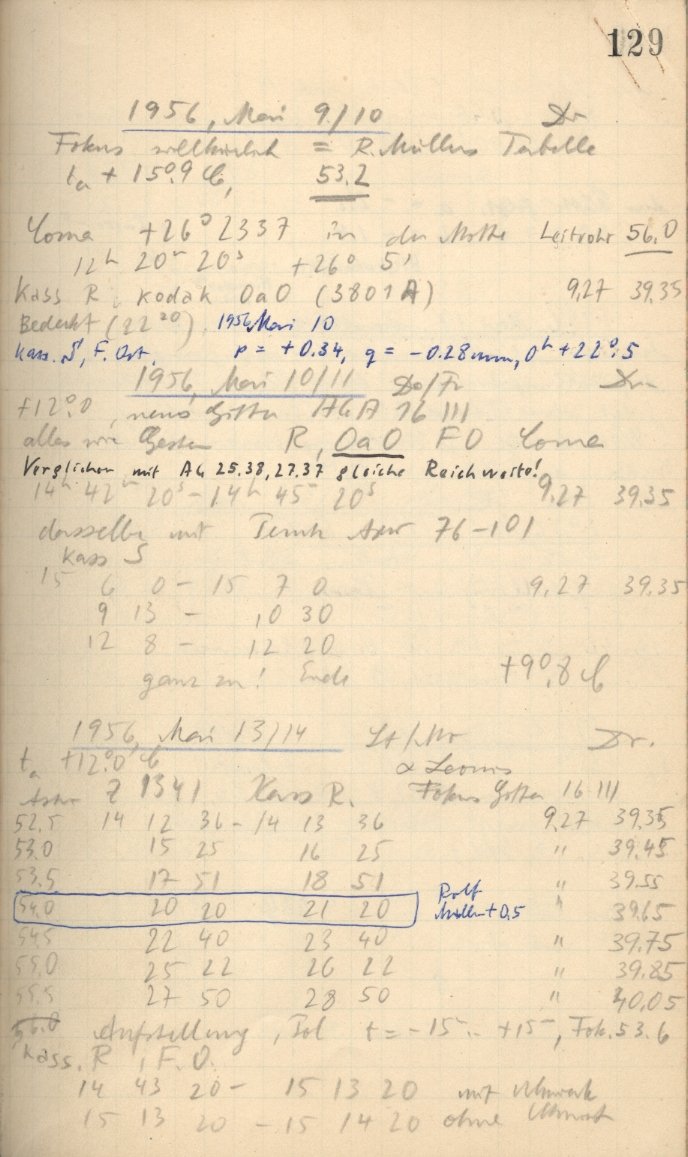 129
1956, Mai 9/10 Dr
Fokus = R. Müllers Tabelle
ta + 15°,9 C, 53.2
Coma +26° 2337 in der Mitte Leitrohr 56.0
12h 20m 20s +26° 5'
Kass R. Kodak OaO (3801 A) 9,27 39.35
Bedeckt (22 20) 1956 Mai 10
Kass. S, F. Ost. p = +0.34, q = -0.28 mm, 0h +22°.5
1956, Mai 10/11 Do/Fr Dr.
+12°.0, neues Gitter AGA 16 III
alles wie Gestern R, OaO FO Coma
Verglichen mit AG 25.38, 27.37 gleiche Reichweite!
14h 42m 20s - 14h 45m 20s 9,27 39.35
dasselbe mit 76-101
Kass S
15 6 0 - 15 7 0 9,27 39.35
9 13 - 10 30
12 8 - 12 20
ganz zu! Ende +9°,8 C
1956, Mai 13/14 Dr.
ta +12°,0 C α Leonis
Astro Z 1341 Kass R. Fokus Gitter 16 III
52.5 14 12 36 - 14 13 36 9,27 39.35
53.0 15 25 16 25 " 39.45
53.5 17 51 18 51 " 39.55
54.0 20 20 21 20 Rolf Müller + 0.5 " 39.65
54.5 22 40 23 40 " 39.75
55.0 25 22 26 22 " 39.85
55.5 27 50 28 50 " 40.05
56.0 Aufstellung, Pol t = -15m.. +15m, Fok. 53.6
Kass. R, F.O.
14 43 20 - 15 13 20 mit Uhrwerk
15 13 20 - 15 14 20 ohne Uhrwerk